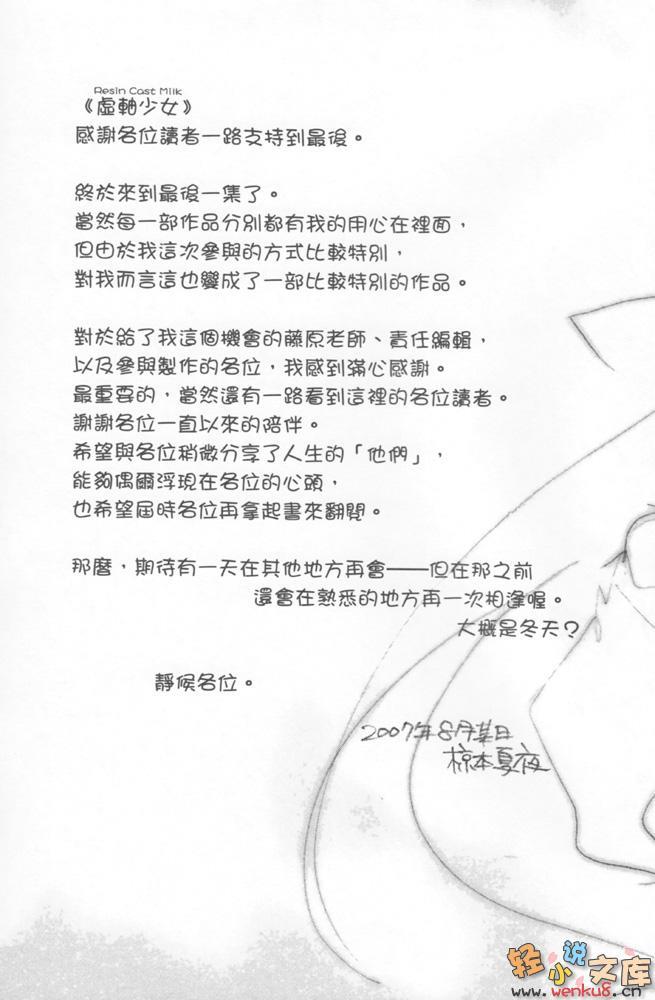 Resin Cast Milk
《虛軸少女》
感謝各位讀者一路支持到最後。
終於來到最後一集了。
當然每一部作品分別都有我的用心在裡面，
但由於我這次參與的方式比較特別，
對我而言這也變成了一部比較特別的作品。
對於給了我這個機會的藤原老師、責任編輯，
以及參與製作的各位，我感到滿心感謝。
最重要的，當然還有一路看到這裡的各位讀者。
謝謝各位一直以來的陪伴。
希望與各位稍微分享了人生的「他們」，
能夠偶爾浮現在各位的心頭，
也希望屆時各位再拿起書來翻閱。
那麼，期待有一天在其他地方再會——但在那之前
還會在熟悉的地方再一次相逢喔。
大概是冬天？
靜候各位。
2007年8月某日
椋本夏夜
轻小说文库
www.wenku8.cn